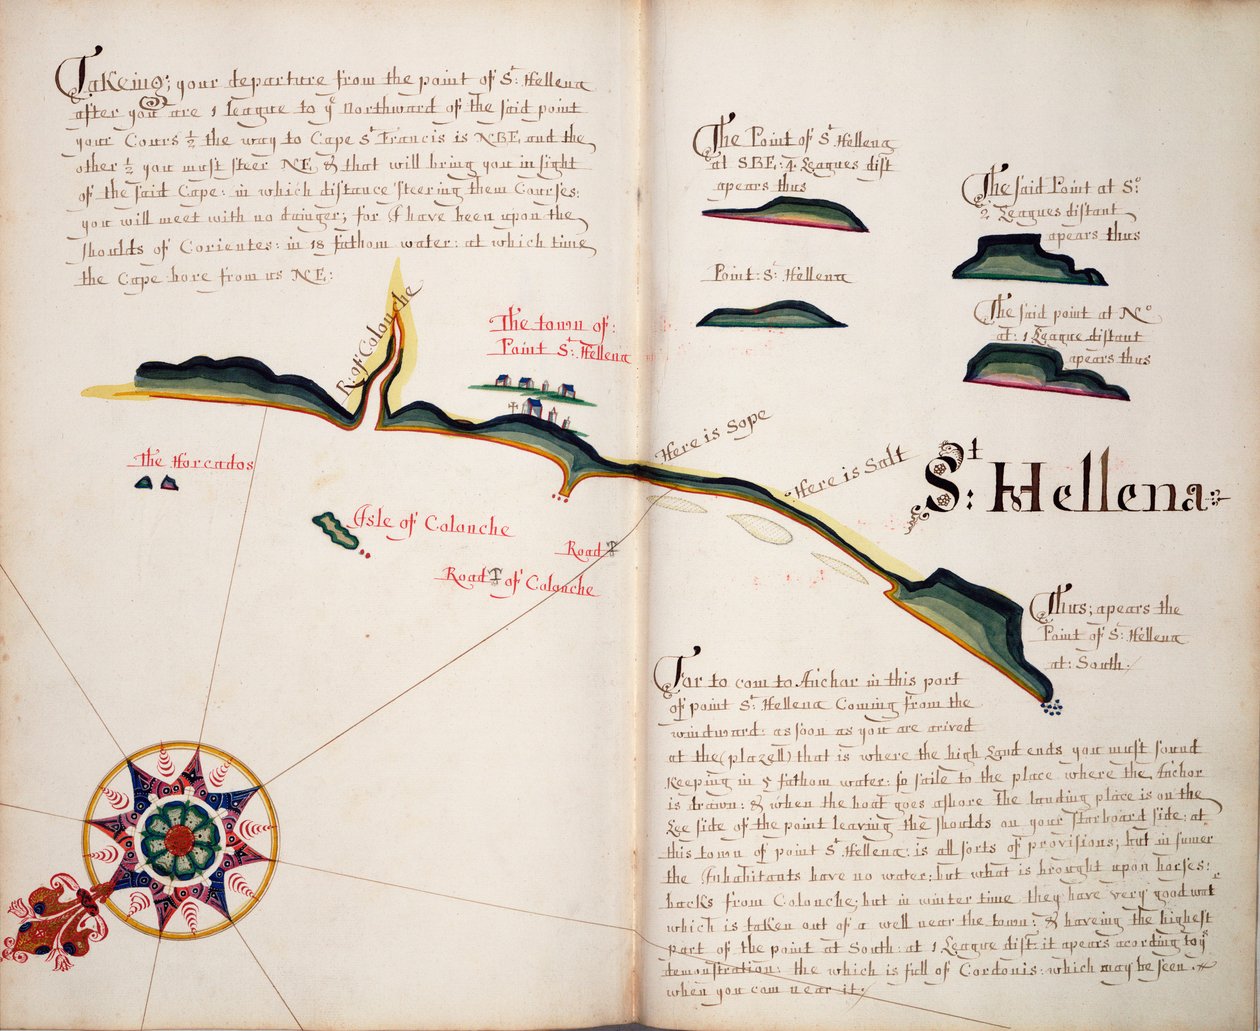 Takeing; your departure from the point of St: Hellena
after you are 1 league to ye Northward of the said point
your Cours ½ the way to Cape St Francis is NBE and the
other ½ you must steer NE, & that will bring you in sight
of the said Cape: in which distance steering them Courses:
you will meet with no dainger; for I have been upon the
shoulds of Corientes: in 18 fathom water: at which time
the Cape bore from us NE:
R: of Colonche
The town of:
Point St: Hellena
The Horcados
Isle of Colonche
Road
Road of Colonche
The Point of St Hellena
at SBE: 4 Leagues dist
apears thus
Point: St: Hellena
The said Point at So:
2 Leagues distant
apears thus
The said point at No
at: 1 League distant
apears thus
Here is Sope
Here is Salt
St: Hellena
Thus; apears the
Point of St: Hellena
at: South:
For to com to Anchar in this port
of point St: Hellena Coming from the
windward: as soon as you are arived
at the (plazell) that is where the high Land ends you must sound
Keeping in 5 fathom water: so saile to the place where the Anchor
is drawn: & when the boat goes ashore the landing place is on the
Lee side of the point leaving the shoulds on your starboard side: at
this town of point St Hellena: is all sorts of provisions; but in sumer
the Inhabitants have no water; but what is brought upon horses:
backs from Colonche; but in winter time they have very good wat
which is taken out of a well near the town: & haveing the highest
part of the point at South: at 1 League dist: it apears acording to ye
demonstration: the which is full of Cordonis: which may be seen
when you com near it: